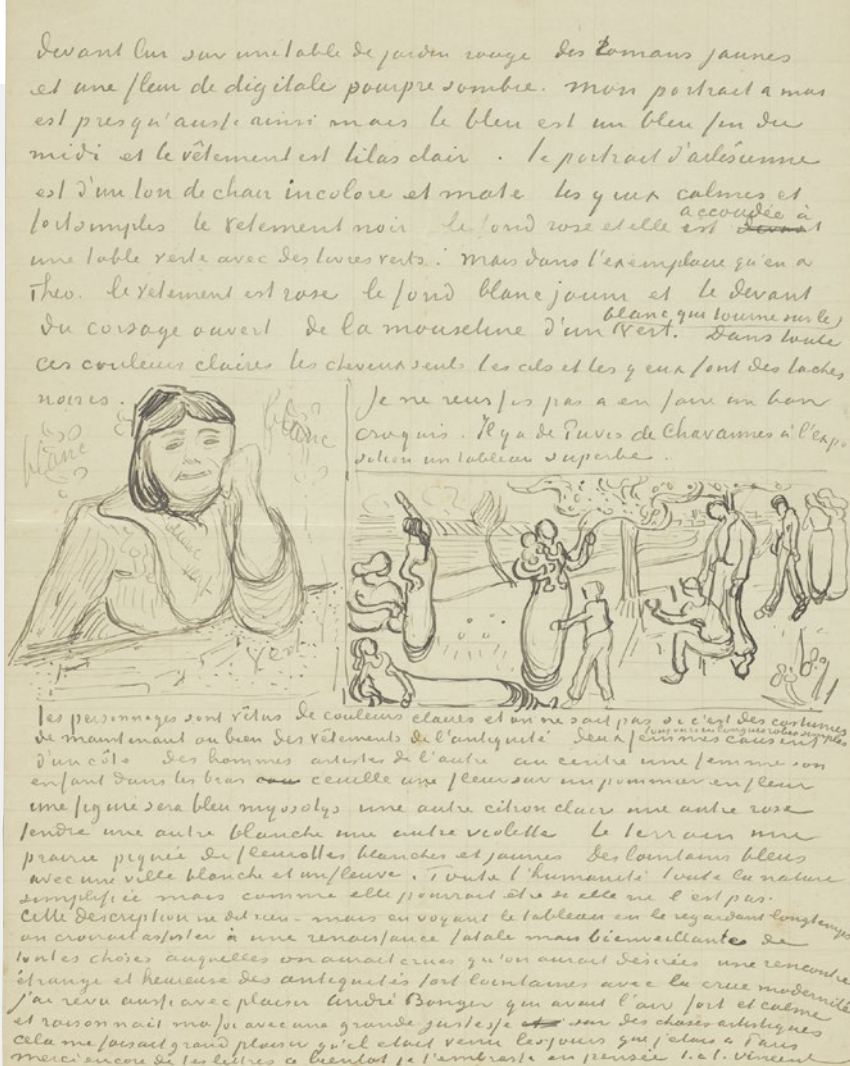 devant lui sur une table de jardin rouge des romans jaunes
et une fleur de digitale pourpre sombre. mon portrait a moi
est presqu'aussi ainsi mais le bleu est un bleu fin du
midi et le vêtement est lilas clair. le portrait d'arlésienne
est d'un ton de chair incolore et mate les yeux calmes et
fort simples le vetement noir le fond rose et elle est accoudée à
une table verte avec des livres verts. Mais dans l'exemplaire qu'en a
Theo. le vêtement est rose le fond blanc jaune et le devant
du corsage ouvert de la mousseline d'un blanc qui tourne sur le
vert. Dans toutes
ces couleurs claires les cheveux seuls les cils et les yeux font des taches
noires.
Je ne reussis pas a en faire un bon
croquis. Il y a de Puvis de Chavannes à l'expo
sition un tableau superbe.
blanc
blanc
blanc
vert
vert
les personnages sont vêtus de couleurs claires et on ne sait pas si c'est des costumes
de maintenant ou bien des vêtements de l'antiquité deux femmes causent
tous aussi en longues robes simples
d'un côté des hommes artistes de l'autre au centre une femme son
enfant dans les bras cueille une fleur sur un pommier en fleur
une figure sera bleu myosotys une autre citron clair une autre rose
tendre une autre blanche une autre violette Le terrain une
prairie piquée de fleurettes blanches et jaunes Des lointains bleus
avec une ville blanche et un fleuve. Toute l'humanité toute la nature
simplifiée mais comme elle pourrait être si elle ne l'est pas.
Cette description ne dit rien – mais en voyant le tableau en le regardant longtemps
on croirait assister à une renaissance fatale mais bienveillante de
toutes choses auquelles on aurait crues qu'on aurait désirées une rencontre
étrange et heureuse des antiquités fort lointaines avec la crue modernité
j'ai revu aussi avec plaisir André Bonger qui avait l'air fort et calme
et raisonnait ma foi avec une grande justesse sur des choses artistiques
cela me faisait grand plaisir qu'il etait venu les jours que j'etais a Paris
merci encore de tes lettres a bientot je t'embrasse en pensée t. à t. Vincent